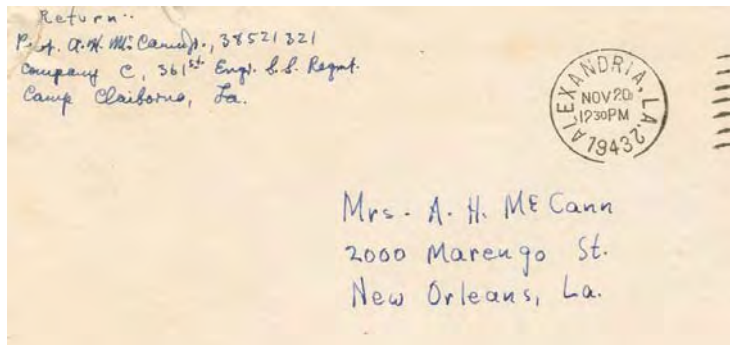 Return..
Pvt. A. H. McCann Jr., 38521321
Company C, 361st. Engr. S.S. Regmt.
Camp Claiborne, La.
ALEXANDRIA, LA. 2
NOV 20
12 30 PM
1943
Mrs. A. H. McCann
2000 Marengo St.
New Orleans, La.